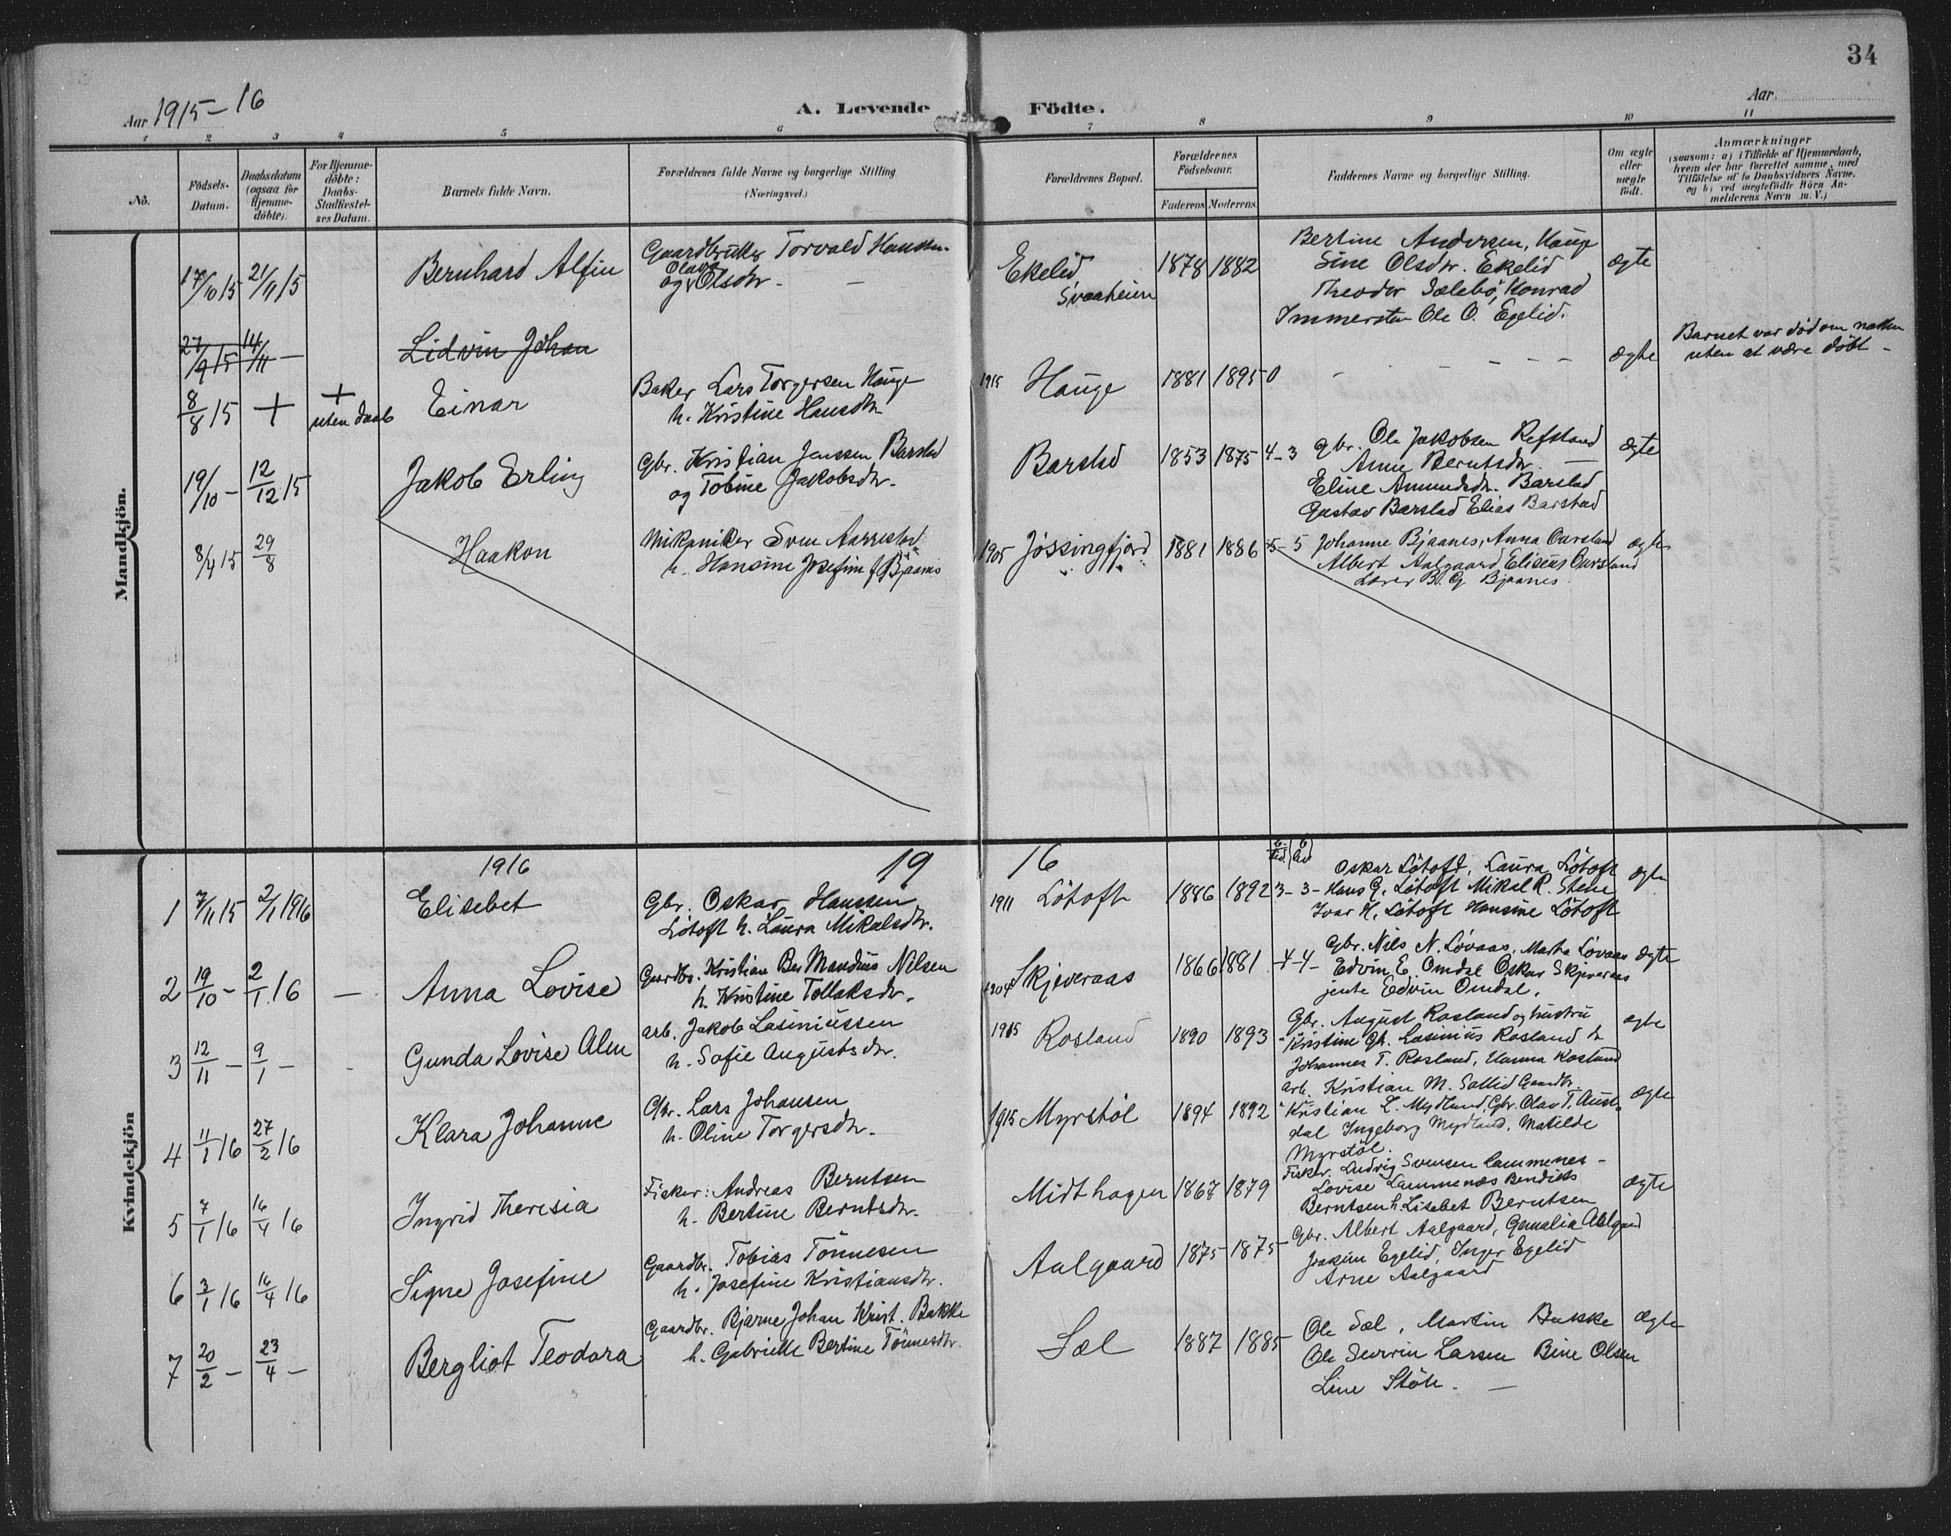 34
Aar 1915-16
A. Levende Födte.
Aar.
1 2 3 4 5 6 7 8 9 10 11
No.
Födsels-Datum.
Daabsdatum (ogsaa for Hjemme-döbte).
For Hjemme-döbte: Daabs-Stadfæstelses Datum.
Barnets fulde Navn.
Forældrenes fulde Navne og borgerlige Stilling (Næringsvei.)
Forældrenes Bopæl.
Forældrenes Födselsaar.
Faderens Moderens
Faddernes Navne og borgerlige Stilling.
Om ægte eller uægte födt.
Anmærkninger
(saasom: a) i Tilfælde af Hjemmedaab, hvem der har forrettet samme, med Tilföielse af to Daabsvidners Navne, og b) ved uægtefödte Börn Anmelderens Navn m. V.)
Mandkjön.
17/10 15 21/11 15 Bernhard Alfin
Gaardbruker Torvald Hansen
og Olava Olsdtr. —
Ekelid Svaaheien 1878 1882
Bertine Andersen, Hauge
Sine Olsdtr. Ekelid
Theodor Sælebö, Konrad
Immersten Ole O. Egelid.
ægte
27/9 15 14/11 — Lidvin Johan
ægte
Barnet var död om natten
uten at være döbt —
8/8 15 + + uten daab Einar
Baker Lars Torgersen Hauge
h. Kristine Hansdtr
1915 Hauge 1881 1895 0
19/10 — 12/12 15 Jakob Erling
Gbr. Kristian Jenssen Barstad
og Tobine Jakobsdtr.
Barstad 1853 1875 4-3
Gbr. Ole Jakobsen Refsland
Anne Berntsdtr. —
Eline Amundsdtr. Barstad
Gustav Barstad Elias Barstad
ægte
8/4 15 29/8 Haakon
Mikaniker Sven Aarrestad
h. Hansine Josefine f. Bjaanes
1905 Jössingfjord 1881 1886 5-5
Johanne Bjaanes, Anna Oursland
Albert Aalgaard Eliseus Oursland
Lærer B. G. Bjaanes
ægte
Kvindekjön
1916 19 16
1 7/11 15 2/1 1916 Elisebet
Gbr. Oskar Hanssen
Lötoft h. Laura Mikalsdtr.
1911 Lötoft 1886 1892 3-3-
Oskar Lötoft, Laura Lötoft
Hans G. Lötoft Mikal R. Stene
Ivar H. Lötoft Hansine Lötoft
ægte
2 19/10 — 2/1 16 — Anna Lovise
Gaardbr. Kristian Ber Mandius Nilsen
h. Kristine Tollaksdtr.
1904 Skjeveraas 1866 1881 -4-4-
Gbr. Nils N. Lövaas, Martha Lövaas
Edvin E. Omdal Oskar Skjeveraas
jente Edvin Omdal.
ægte
3 12/11 — 9/1 — Gunda Lovise Alm
arb. Jakob Lasiniussen
h. Sofie Augustsdtr.
1915 Rosland 1890 1893
Gbr. August Rosland og hustru
Kristine Gh. Lasinius Rosland h
Johannes T. Rosland, Hanna Rosland
ægte
4 11/1 16 27/2 16 Klara Johanne
Gbr. Lars Johansen
h. Oline Torgersdtr.
1915 Myrstöl 1894 1892
arb. Kristian M. Sollid Gaardbr.
Kristian L. Mydland, Gbr. Olav T. Aust-
dal Ingeborg Mydland, Matilde
Myrstöl.
ægte
5 7/1 16 16/4 16 Ingrid Theresia
Fisker: Andreas Berntsen
h. Bertine Berntsdtr.
Midthagen 1867 1879
Fisker Ludvig Svensen Lammenes-
Lovise Lammenæs Bendiks
Berntsen h. Lisebet Berntsen
ægte
6 3/1 16 16/4 16 Signe Josefine
Gaardbr. Tobias Tönnesen
h. Josefine Kristiansdtr.
Aalgaard 1875 1875
Gbr. Albert Aalgaard, Gunalia Aalgaard
Joakim Egelid, Inger Egelid
Arne Aalgaard
7 20/2 — 23/4 — Bergliot Teodora
Gaardbr. Bjarne Johan Krist. Bakke
h. Gabrielle Bertine Tönnesdtr.
Sæl 1887 1885
Ole Sæl, Martin Bakke
Ole Severin Larsen Bine Olsen
Line Stöle. —
ægte